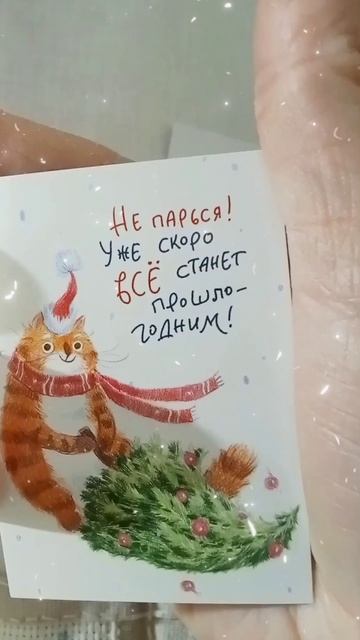 Не парься!
Уже скоро
всё станет
прошло-
годним!